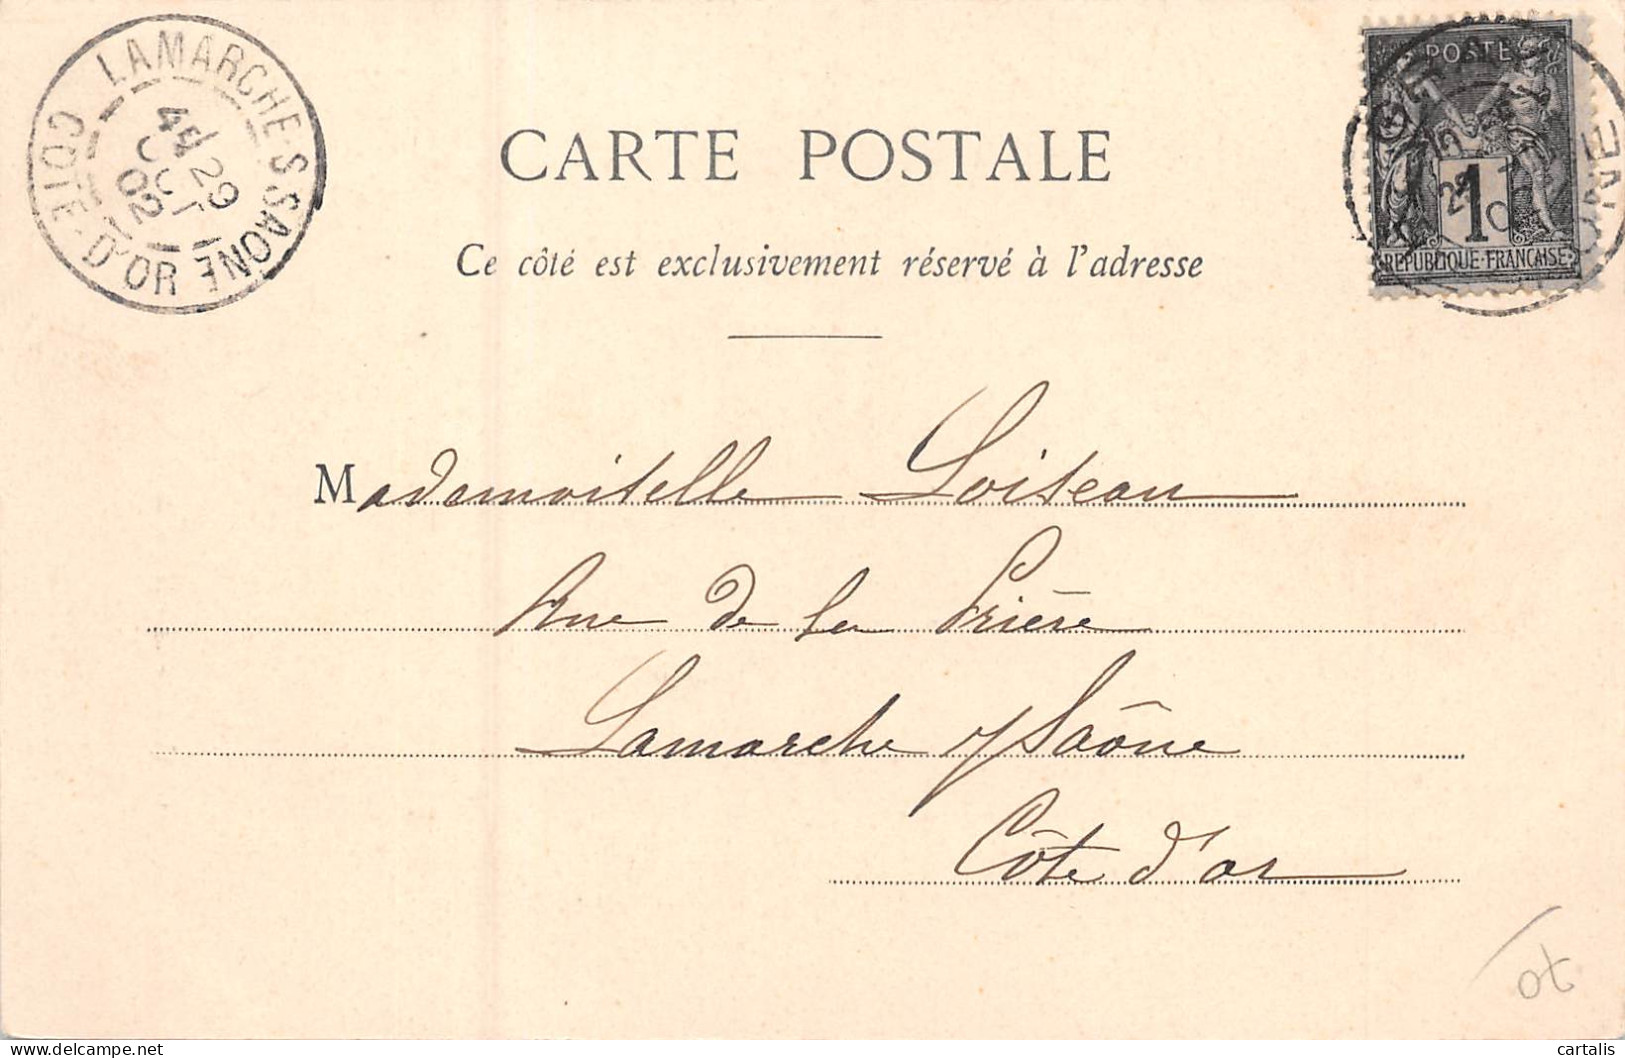 LAMARCHE-S-SAONE
COTE-D'OR
4E
29
OCT
02
POSTE
1
REPUBLIQUE FRANÇAISE
CARTE POSTALE
Ce côté est exclusivement réservé à l'adresse
Mademoiselle Loiseau
Rue de la Prière
Lamarche s/Saône
Côte d'or
cartalis